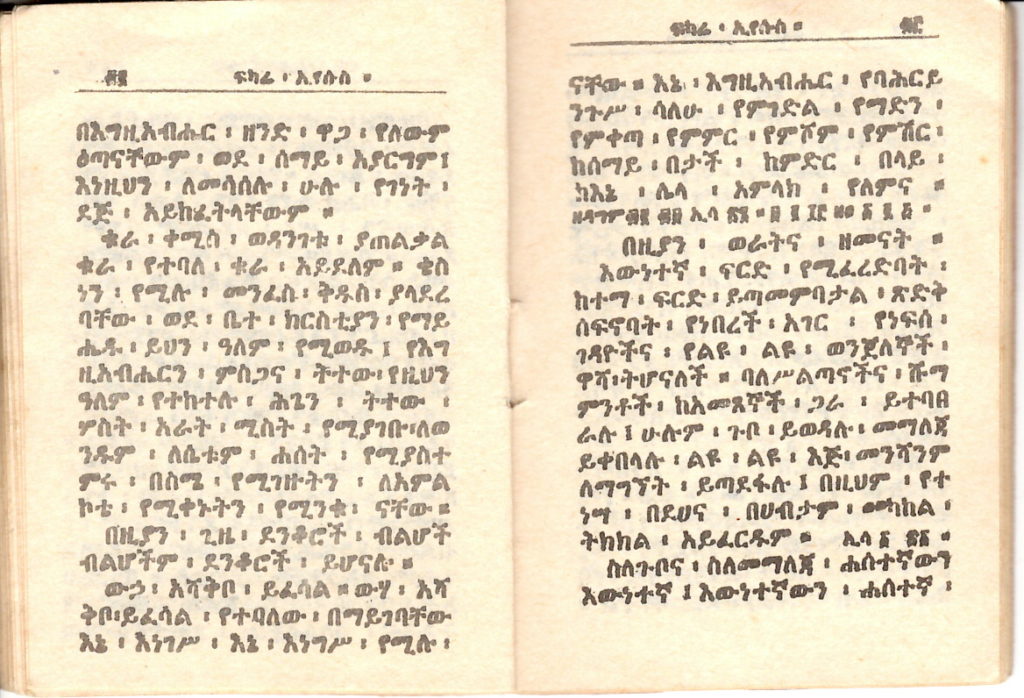 ፍካሬ ፡ ኢየሱስ ።
በእግዚአብሔር ፡ ዘንድ ፡ ዋጋ ፡ የለውም
ዕጣናቸውም ፡ ወደ ፡ ሰማይ ፡ አያርግም፤
እነዚህን ፡ ለመሳሰሉ ፡ ሁሉ ፡ የገነት ፡
ደጅ ፡ አይከፈትላቸውም ።
ቁራ ፡ ቀሚስ ፡ ወዳንገቱ ፡ ያጠልቃል
ቁራ ፡ የተባለ ፡ ቁራ ፡ አይደለም ። ቄስ
ነን ፡ የሚሉ ፡ መንፈስ ፡ ቅዱስ ፡ ያላደረ
ባቸው ፡ ወደ ፡ ቤተ ፡ ክርስቲያን ፡ የማይ
ሔዱ ፡ ይህን ፡ ዓለም ፡ የሚወዱ ፤ የእግ
ዚአብሔርን ፡ ምስጋና ፡ ትተው፡የዚህን
ዓለም ፡ የተከተሉ ፡ ሕጌን ፡ ትተው ፡
ሦስት ፡ አራት ፡ ሚስት ፡ የሚያገቡ፡ለወ
ንዱም ፡ ለሴቱም ፡ ሐሰት ፡ የሚያስተ
ምሩ ፡ በስሜ ፡ የሚገዙትን ፡ ለአምል
ኮቴ ፡ የሚቀኑትን ፡ የሚንቁ ፡ ናቸው ።
በዚያን ፡ ጊዜ ፡ ደንቆሮች ፡ ብልሆች
ብልሆችም ፡ ደንቆሮች ፡ ይሆናሉ ።
ውኃ ፡ አሻቅቦ ፡ ይፈሳል ። ውሃ ፡ አሻ
ቅቦ፡ይፈሳል ፡ የተባለው ፡ በማይገባቸው
እኔ ፡ እነገሥ ፡ እኔ ፡ እነግሥ ፡ የሚሉ ፡
ፍካሬ ፡ ኢየሱስ ።
ናቸው ። እኔ ፡ እግዚአብሔር ፡ የባሕርይ
ንጉሥ ፡ ሳለሁ ፡ የምገድል ፡ የማድን ፡
የምቀጣ ፡ የምምር ፡ የምሾም ፡ የምሽር ፡
ከሰማይ ፡ በታች ፡ ከምድር ፡ በላይ ፡
ከእኔ ፡ ሌላ ፡ አምላክ ፡ የለምና ።
በዚያን ፡ ወራትና ፡ ዘመናት ።
እውነተኛ ፡ ፍርድ ፡ የሚፈረድባት ፡
ከተማ ፡ ፍርድ ፡ ይጣመምባታል ፡ ጽድቅ
ሰፍኖባት ፡ የነበረች ፡ አገር ፡ የነፍሰ ፡
ገዳዮችና ፡ የልዩ ፡ ልዩ ፡ ወንጀለኞች ፡
ዋሻ፡ትሆናለች ። ባለሥልጣኖችና ፡ ሹማ
ምንቶች ፡ ከአመጸኞች ፡ ጋራ ፡ ይተባበ
ራሉ ፤ ሁሉም ፡ ጉቦ ፡ ይወዳሉ ፡ መማለጃ
ይቀበላሉ ፡ ልዩ ፡ ልዩ ፡ እጅ፡መንሻንም
ለማግኘት ፡ ይጣደፋሉ ፤ በዚህም ፡ የተ
ነሣ ፡ በደሀና ፡ በሀብታም ፡ መካከል ፡
ትክክል ፡ አይፈርዱም ።
ስለጉቦና ፡ ስለመማለጃ ፡ ሐሰተኛውን
እውነተኛ ፤ እውነተኛውን ፡ ሐሰተኛ ፡